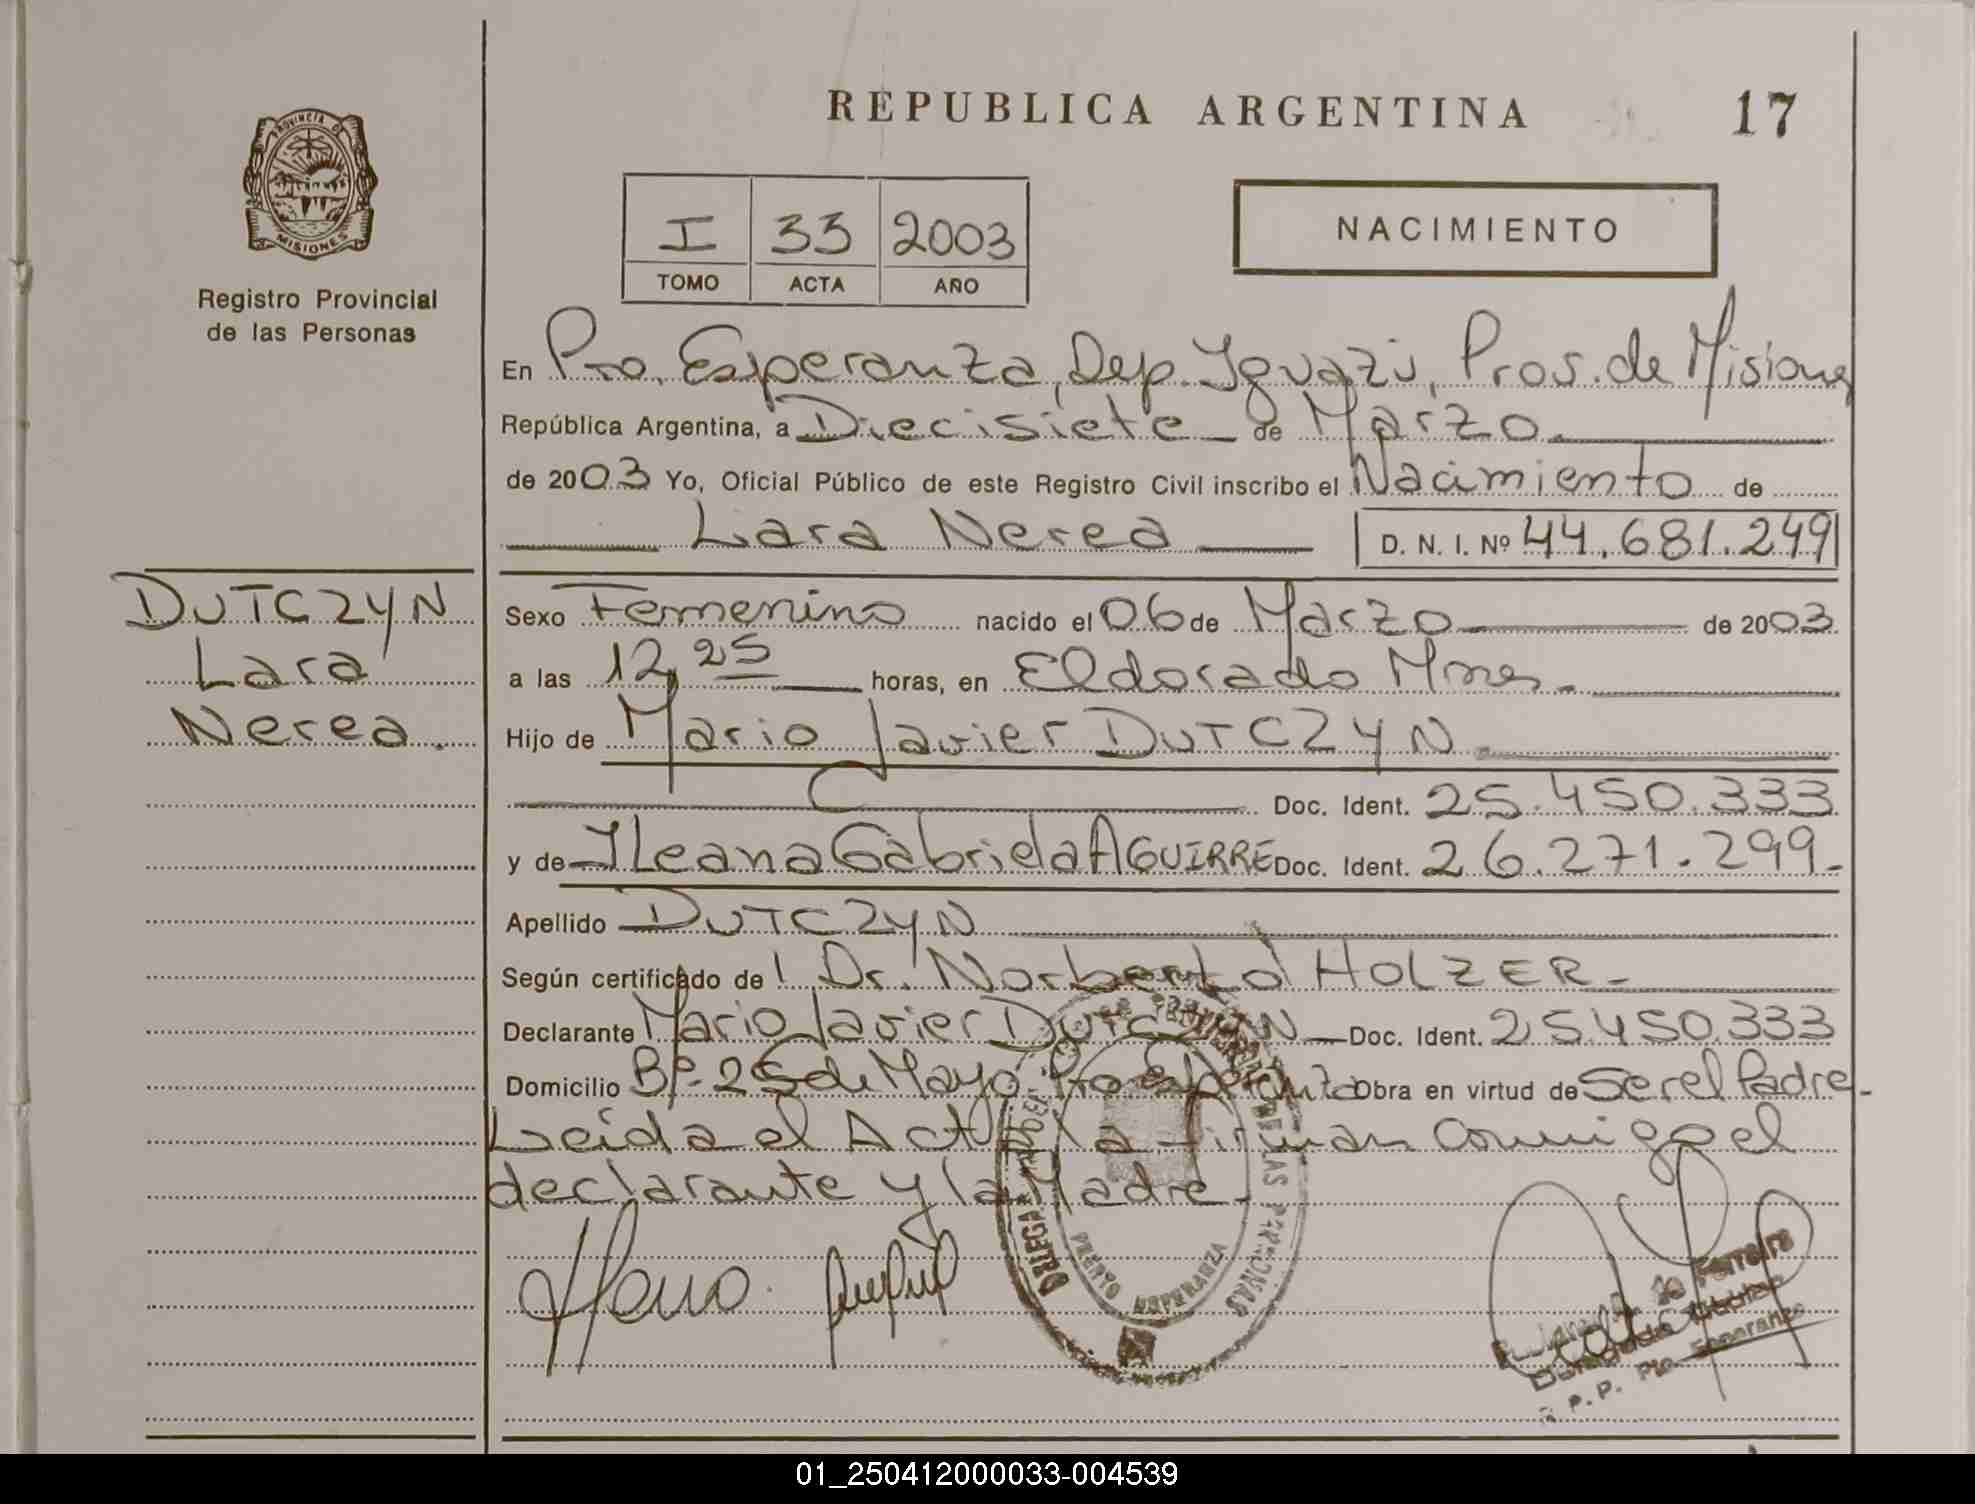 REPUBLICA ARGENTINA
17
PROVINCIA DE
MISIONES
Registro Provincial
de las Personas
I 33 2003
TOMO ACTA AÑO
NACIMIENTO
En Pto. Esperanza, Dep. Iguazú, Prov. de Misiones
República Argentina, a Diecisiete de Marzo
de 2003 Yo, Oficial Público de este Registro Civil inscribo el Nacimiento de
Lara Nerea D. N. I. Nº 44.681.249
DUTCZYN
Lara
Nerea.
Sexo Femenino nacido el 06 de Marzo de 2003
a las 12,25 horas, en Eldorado Mnes.
Hijo de Mario Javier DUTCZYN
Doc. Ident. 25.450.333
y de ILeana Gabriela AGUIRRE Doc. Ident. 26.271.299.-
Apellido DUTCZYN
Según certificado de Dr. Norberto HOLZER-
Declarante Mario Javier DUTCZYN Doc. Ident. 25.450.333
Domicilio Bº 25 de Mayo Pto Esperanza Obra en virtud de Ser el Padre-
Leída el Acta la firman conmigo el
declarante y la Madre-
PUERTO ESPERANZA
DE LAS PERSONAS
Ferreira
Pto. Esperanza
01_250412000033-004539